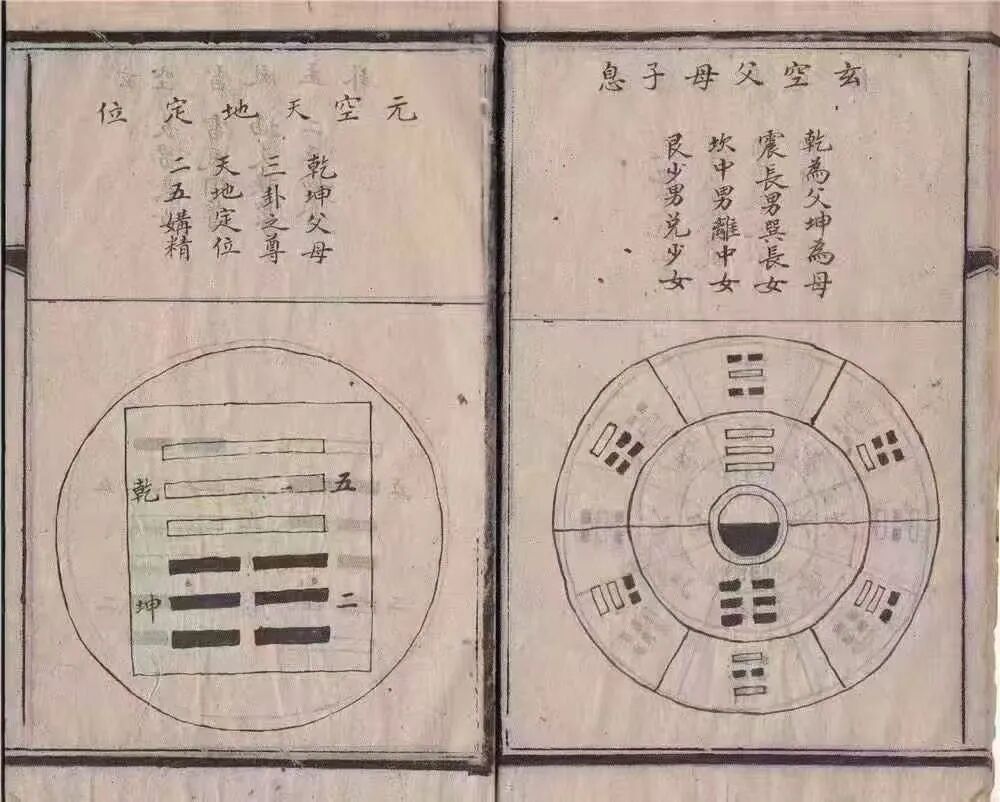 玄空父母子息
乾為父坤為母
震長男巽長女
坎中男離中女
艮少男兌少女
元空天地定位
乾坤父母
三卦之尊
天地定位
二五媾精
乾
五
坤
二